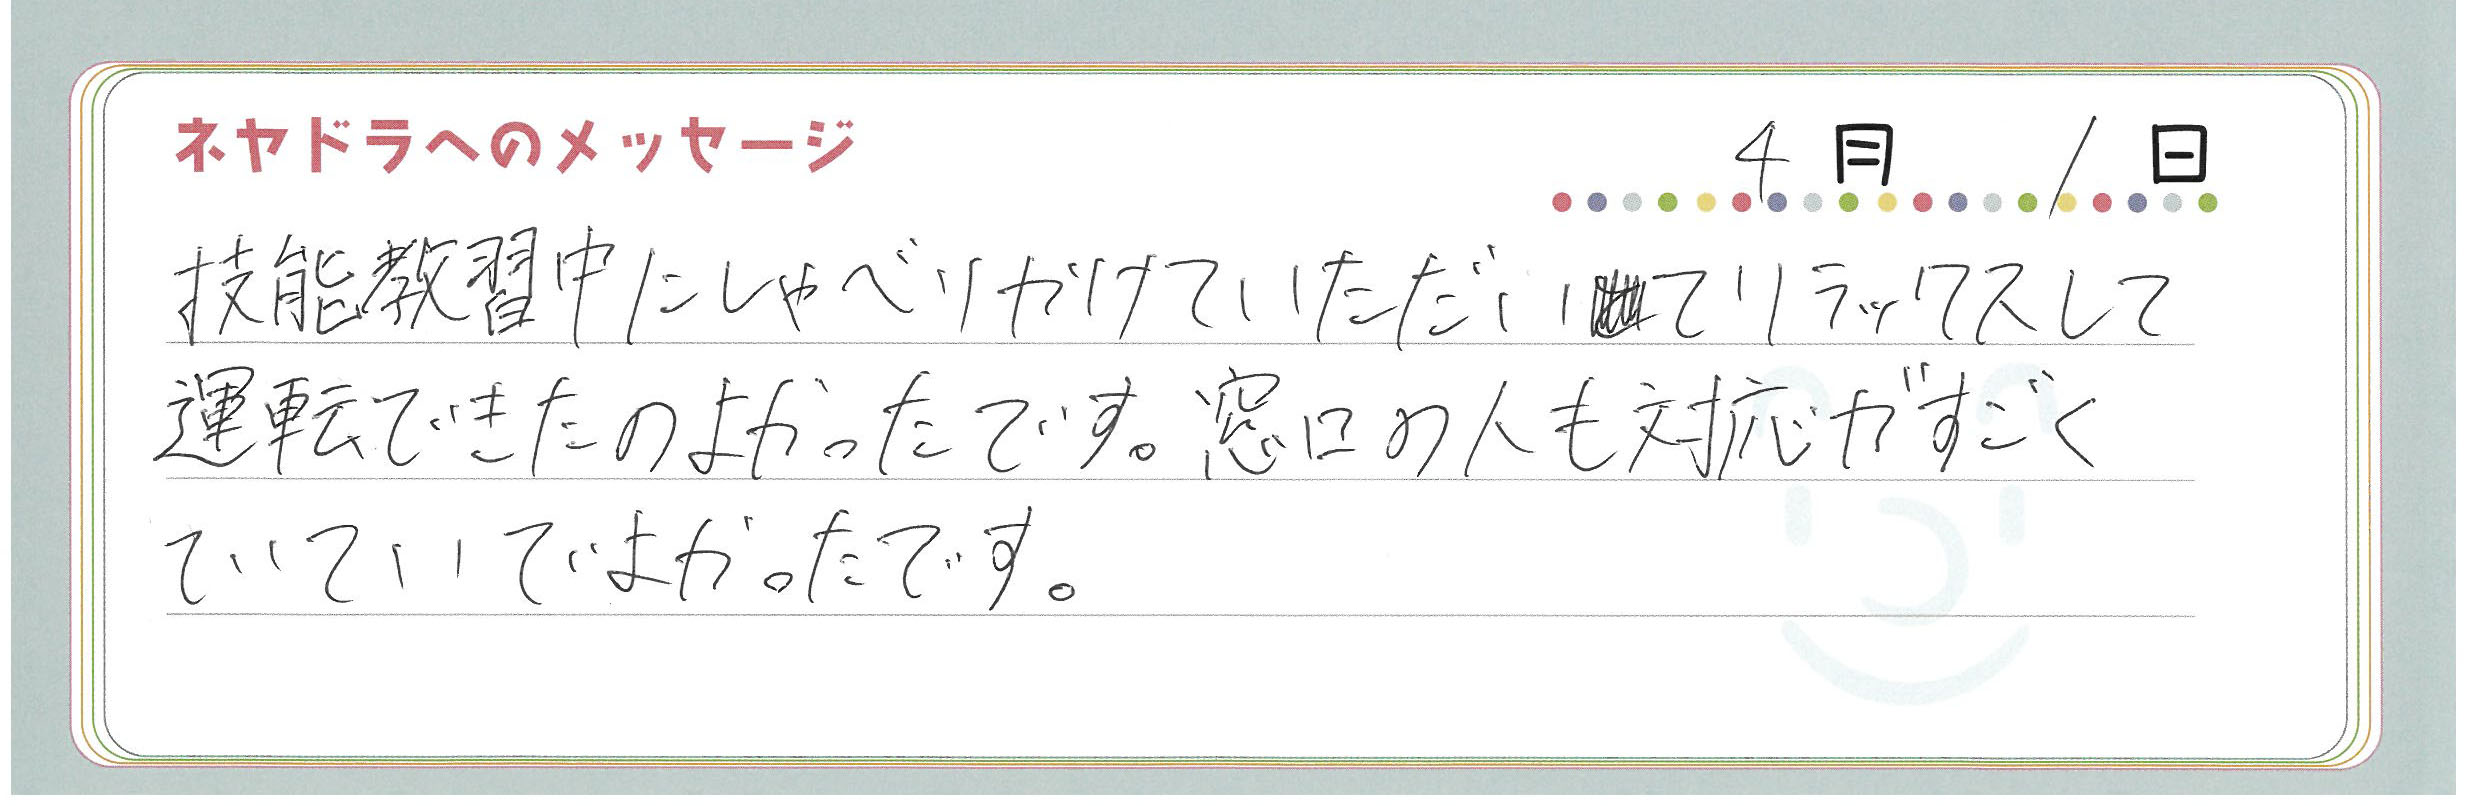 ネヤドラへのメッセージ
4月 1日
技能教習中にしゃべりかけていただいてリラックスして
運転できたのよかったです。窓口の人も対応がすごく
ていていでよかったです。